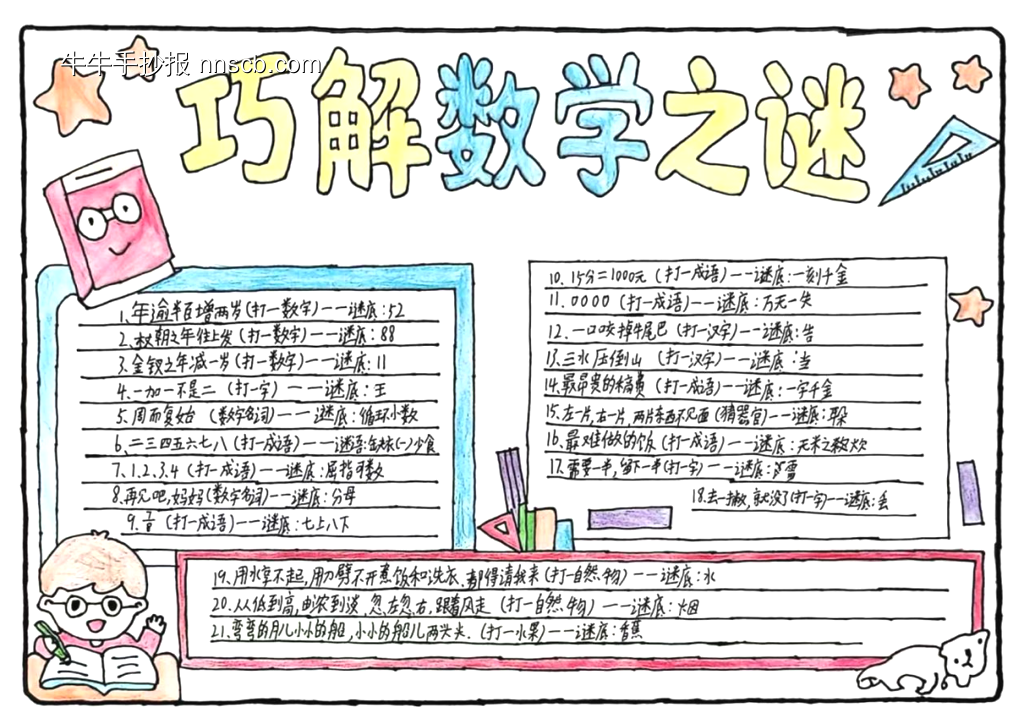 牛牛手抄报 nnscb.com
巧解数学之谜
1、年逾半百增两岁(打一数字)——谜底:52
2、权朝之年往上发(打一数字)——谜底:88
3、金钗之年减一岁(打一数字)——谜底:11
4、一加一不是二(打一字)——谜底:王
5、周而复始(数学名词)——谜底:循环小数
6、二三四五六七八(打一成语)——谜语:缺衣(一)少食
7、1.2.3.4(打一成语)——谜底:屈指可数
8、再见吧,妈妈(数学名词)——谜底:分母
9、(打一成语)——谜底:七上八下
10、15分=1000元(打一成语)——谜底:一刻千金
11、0000(打一成语)——谜底:万无一失
12、一口咬掉牛尾巴(打一汉字)——谜底:告
13、三水压倒山(打一汉字)——谜底:当
14、最昂贵的稿费(打一成语)——谜底:一字千金
15、左一片,右一片,两片东西不见面(猜器官)——谜底:耳朵
16、最难做的饭(打一成语)——谜底:无米之炊
17、需要一半,留下一半(打一字)——谜底:雷
18、去一撇,就没了(打一字)——谜底:丢
19、用水拿不起,用刀劈不开煮饭和洗衣、都得请我来(打一自然物)——谜底:水
20、从低到高,由浓到淡,忽左忽右,跟着风走(打一自然物)——谜底:烟
21、弯弯的月儿小小的船,小小的船儿两头尖.(打一水果)——谜底:香蕉